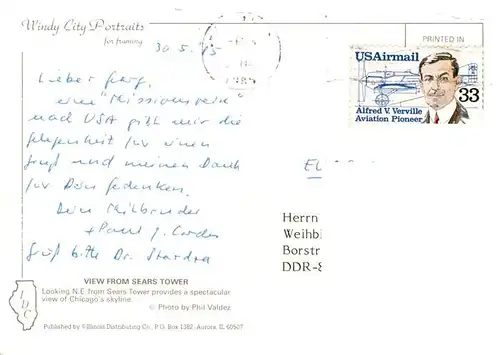 Windy City Portraits
for framing
PRINTED IN
30.5.85
USAirmail
33
Alfred V. Verville
Aviation Pioneer
Lieber
eine "Missionsreise"
nach USA gibt mir die
Gelegenheit für einen
Gruß und meinen Dank
für Dein Gedenken.
Dein Mitbruder
+ Paul J. Cordes
Gruß bitte Dr.
Herrn
Weihbi
Borstr
DDR-8
VIEW FROM SEARS TOWER
Looking N.E. from Sears Tower provides a spectacular
view of Chicago's skyline.
© Photo by Phil Valdez
IDC
Published by ©Illinois Distributing Co., P.O. Box 1382 - Aurora, Il. 60507